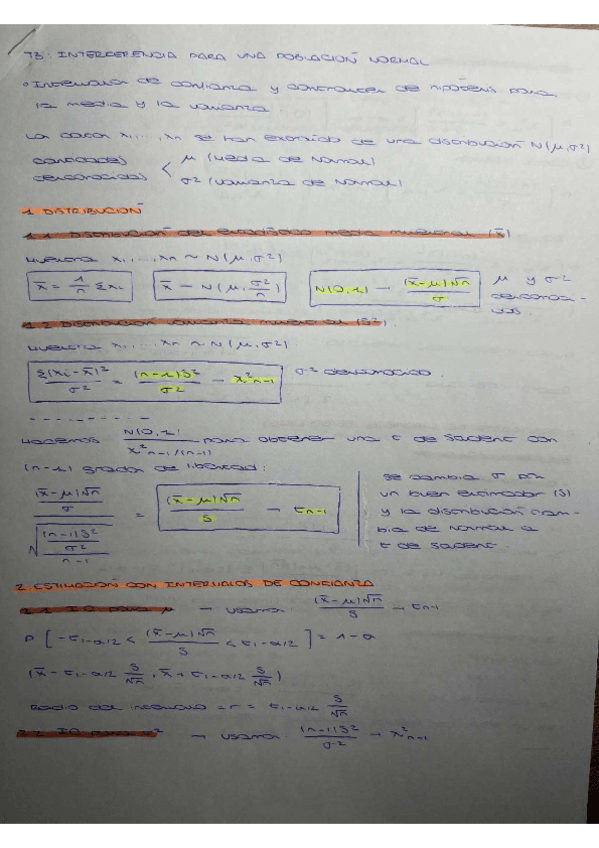 T3: INTERFERENCIA PARA UNA POBLACIÓN NORMAL
• Intervalos de confianza y contrastes de hipótesis para
la media y la varianza.
Los datos x₁,...,xₙ se han extraído de una distribución N(μ,σ²)
cantidades desconocidas < μ (media de normal)
σ² (varianza de normal)
1. DISTRIBUCIÓN
1.1. Distribución del estadístico media muestral (x̄)
Muestra x₁,...,xₙ ~ N(μ,σ²)
x̄ = 1/n Σxᵢ
x̄ — N(μ, σ²/n)
N(0,1) — (x̄-μ)√n / σ
μ y σ²
descono-
cidas
1.2 Distribución varianza muestral (S²).
Muestra x₁,...,xₙ ~ N(μ,σ²).
Σ(xᵢ-x̄)²/σ² = (n-1)S²/σ² — x²ₙ₋₁
σ² desconocida.
Hacemos N(0,1) / (x²ₙ₋₁/(n-1)) para obtener una t de Student con
(n-1) grados de libertad:
((x̄-μ)√n / σ) / √(((n-1)S²/σ²) / (n-1)) = (x̄-μ)√n / S — tₙ₋₁
se cambia σ por
un buen estimador (S)
y la distribución cam-
bia de normal a
t de Student
2. ESTIMACIÓN CON INTERVALOS DE CONFIANZA
2.1. IC para μ → usamos (x̄-μ)√n / S — tₙ₋₁
P [ -t₁₋α/₂ < (x̄-μ)√n / S < t₁₋α/₂ ] = 1-α
(x̄ - t₁₋α/₂ S/√n, x̄ + t₁₋α/₂ S/√n)
Radio del intervalo = r = t₁₋α/₂ S/√n
2.2. IC para σ² → usamos (n-1)S²/σ² → x²ₙ₋₁